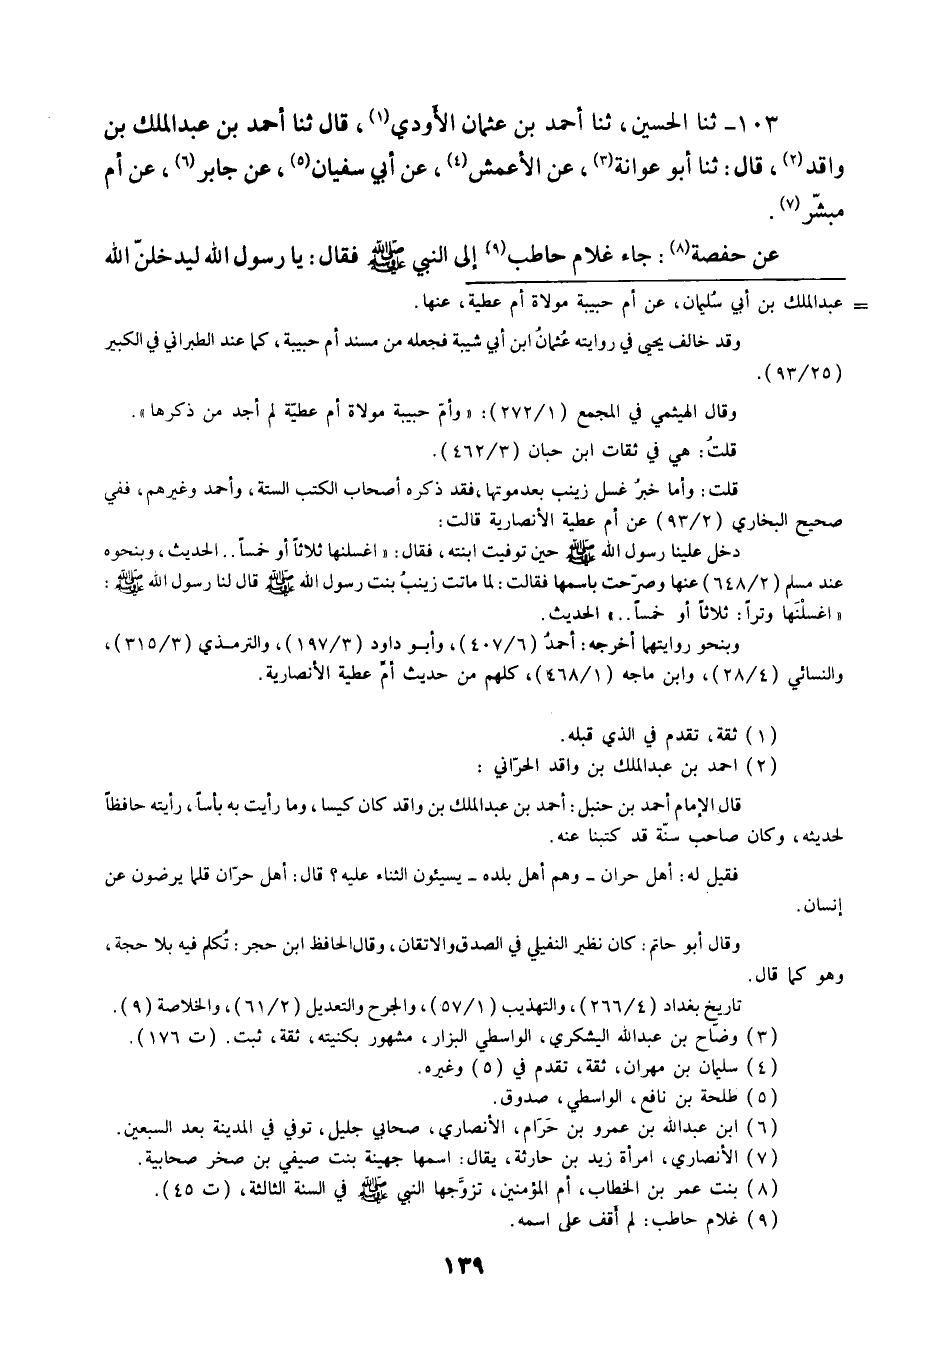 ١٠٣ـ ثنا الحسين، ثنا أحمد بن عثمان الأودي(١)، قال ثنا أحمد بن عبدالملك بن
واقد(٢)، قال: ثنا أبو عوانة(٣)، عن الأعمش(٤)، عن أبي سفيان(٥)، عن جابر(٦)، عن أم
مبشّر(٧).
عن حفصة(٨): جاء غلام حاطب(٩) إلى النبي ﷺ فقال: يا رسول الله ليدخلنّ الله
= عبدالملك بن أبي سُليمان، عن أم حبيبة مولاة أم عطية، عنها.
وقد خالف يحيى في روايته عُثمانُ ابن أبي شيبة فجعله من مسند أم حبيبة، كما عند الطبراني في الكبير
(٩٣/٢٥).
وقال الهيثمي في المجمع (٢٧٢/١): «وأمّ حبيبة مولاة أم عطيّة لم أجد من ذكرها».
قلتُ: هي في ثقات ابن حبان (٤٦٢/٣).
قلت: وأما خبرُ غسل زينب بعدموتها،فقد ذكره أصحاب الكتب الستة، وأحمد وغيرهم، ففي
صحيح البخاري (٩٣/٢) عن أم عطية الأنصارية قالت:
دخل علينا رسول الله ﷺ حين توفيت ابنته، فقال: «اغسلنها ثلاثاً أو خمساً.. الحديث، وبنحوه
عند مسلم (٦٤٨/٢) عنها وصرّحت باسمها فقالت: لما ماتت زينبُ بنت رسول الله ﷺ قال لنا رسول الله ﷺ:
«اغسلْنَها وتراً: ثلاثاً أو خمساً..» الحديث.
وبنحو روايتها أخرجه: أحمدُ (٤٠٧/٦)، وأبو داود (١٩٧/٣)، والترمذي (٣١٥/٣)،
والنسائي (٢٨/٤)، وابن ماجه (٤٦٨/١)، كلهم من حديث أمّ عطية الأنصارية.
(١) ثقة، تقدم في الذي قبله.
(٢) احمد بن عبدالملك بن واقد الحرّاني :
قال الإمام أحمد بن حنبل: أحمد بن عبدالملك بن واقد كان كيسا، وما رأيت به بأساً، رأيته حافظاً
لحديثه، وكان صاحب سنّة قد كتبنا عنه.
فقيل له: أهل حران ـ وهم أهل بلده ـ يسيئون الثناء عليه؟ قال: أهل حرّان قلما يرضون عن
إنسان.
وقال أبو حاتم: كان نظير النفيلي في الصدق والاتقان، وقال الحافظ ابن حجر: تُكلم فيه بلا حجة،
وهو كما قال.
تاريخ بغداد (٢٦٦/٤)، والتهذيب (٥٧/١)، والجرح والتعديل (٦١/٢)، والخلاصة (٩).
(٣) وضّاح بن عبدالله اليشكري، الواسطي البزار، مشهور بكنيته، ثقة، ثبت. (ت ١٧٦).
(٤) سليمان بن مهران، ثقة، تقدم في (٥) وغيره.
(٥) طلحة بن نافع، الواسطي، صدوق.
(٦) ابن عبدالله بن عمرو بن حَرَام، الأنصاري، صحابي جليل، توفي في المدينة بعد السبعين.
(٧) الأنصاري، امرأة زيد بن حارثة، يقال: اسمها جهينة بنت صيفي بن صخر صحابية.
(٨) بنت عمر بن الخطاب، أم المؤمنين، تزوَّجها النبي ﷺ في السنة الثالثة، (ت ٤٥).
(٩) غلام حاطب: لم أقف على اسمه.
١٣٩